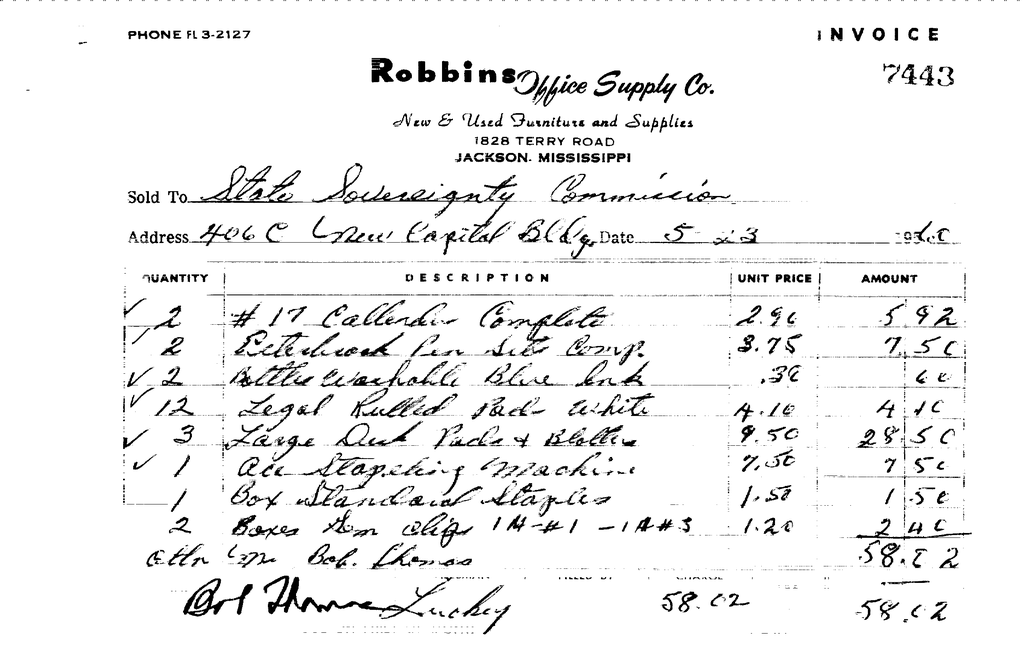 PHONE FL 3-2127
INVOICE
Robbins Office Supply Co.
7443
New & Used Furniture and Supplies
1828 TERRY ROAD
JACKSON. MISSISSIPPI
Sold To State Sovereignty Commission
Address 406 C New Capital Bldg. Date 5 23 1960
QUANTITY DESCRIPTION UNIT PRICE AMOUNT
✓ 2 #17 Callendar Complete 2.96 5 92
2 Esterbrook Pen Sets Comp. 3.75 7.50
✓ 2 Bottles Washable Blue Ink .30 60
✓ 12 Legal Rulled Pads White 4.10 4 10
✓ 3 Large Desk Pads & Blotters 9.50 28 50
✓ 1 Ace Stapeking Machine 7.50 7 50
1 Box Standard Staples 1.50 1 50
2 Boxes Gem Clips 1A-#1 - 1A#3 1.20 2 40
Attn Mr Bob. Thomas 58.02
CHARGE
Bob Thomas Luckey 58.02 58.02